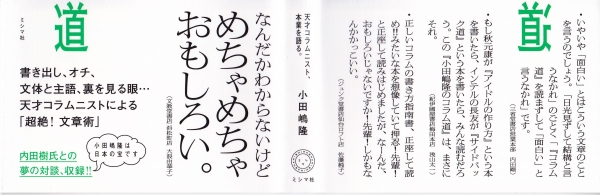 道
・いやいや「面白い」とはこういう文章のこと
を言うのでしょう。「日光見ずして結構と言
うなかれ」のごとく「『コラム
道』を読まずして「面白い」と
言うなかれ」です。
(三省堂書店営業本部 内田剛)
・もし秋元康が『アイドルの作り方』という本
を書いたら、インテルの長友が『サイドバッ
ク道』という本を書いたら、みんな読むだろ
う。この『小田嶋隆のコラム道』は、まさに
それ。
・正しいコラムの書き方指南書、正座して読
め!!みたいな本を想像していて押忍!先輩!
と正座して読みはじめましたが、なーんだ、
おもしろいじゃないですか!先輩!しかもな
んかかっこいい。
(ジュンク堂書店仙台ロフト店 佐藤純子)
天才コラムニスト、
本業を語る。
小田嶋隆
ミシマ社
なんだかわからないけど
めちゃめちゃ
おもしろい。
道
書き出し、オチ、
文体と主語、裏を見る眼…
天才コラムニストによる
「超絶!文章術」
内田樹氏との
夢の対談、収録!!
小田嶋隆は
日本の宝です
ミシマ社